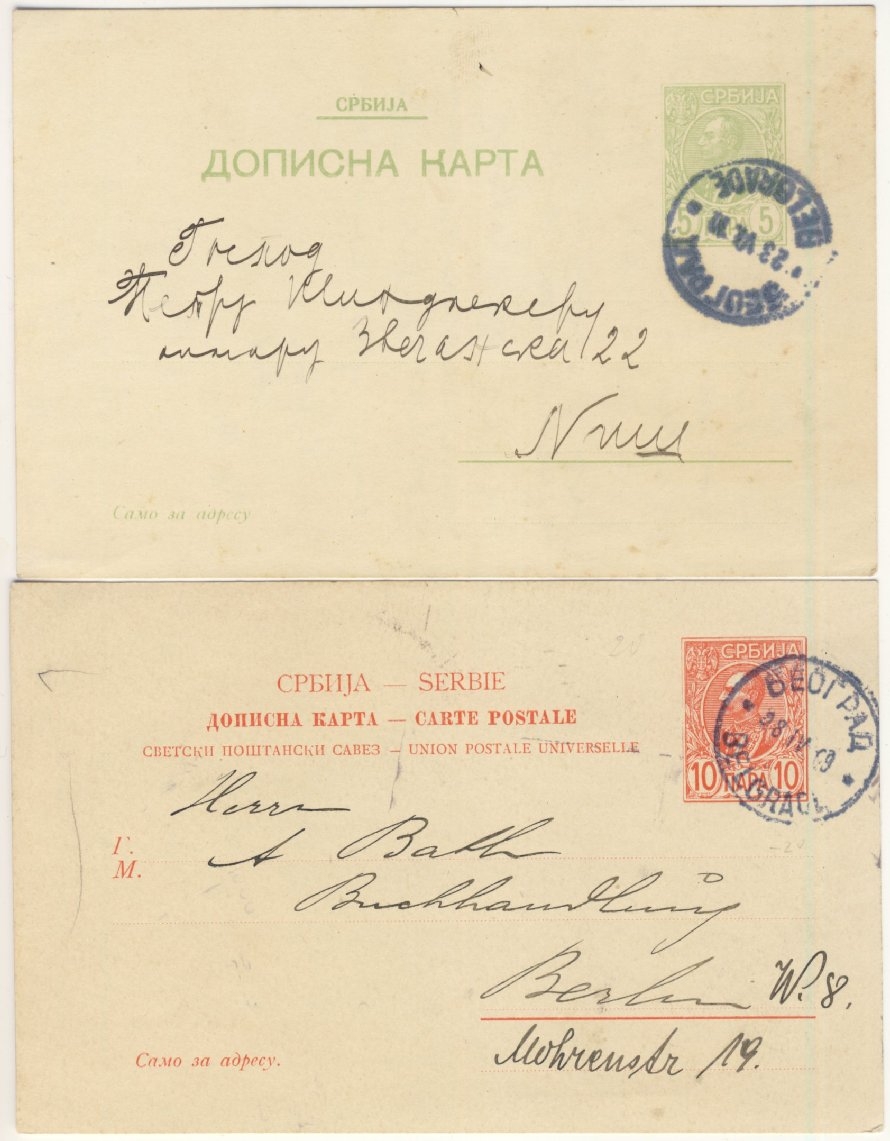 СРБИЈА
ДОПИСНА КАРТА
СРБИЈА
5 ПАРА 5
БЕОГРАД
BELGRADE
23 VI
Господ
Петру
22
Ниш
Само за адресу
СРБИЈА — SERBIE
ДОПИСНА КАРТА — CARTE POSTALE
СВЕТСКИ ПОШТАНСКИ САВЕЗ — UNION POSTALE UNIVERSELLE
СРБИЈА
10 ПАРА 10
БЕОГРАД
BELGRADE
Г.
М.
Herrn
A Bath
Buchhandlung
Berlin W. 8.
Mohrenstr 19.
Само за адресу.